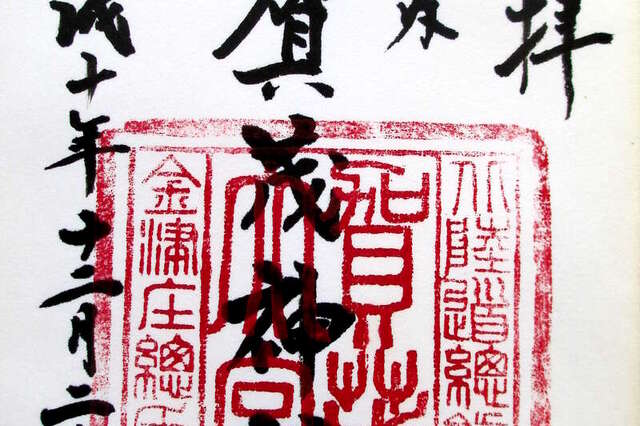 拝
賀茂神
成十年十二月二
北陸道總
賀茂
宮
金津庄總